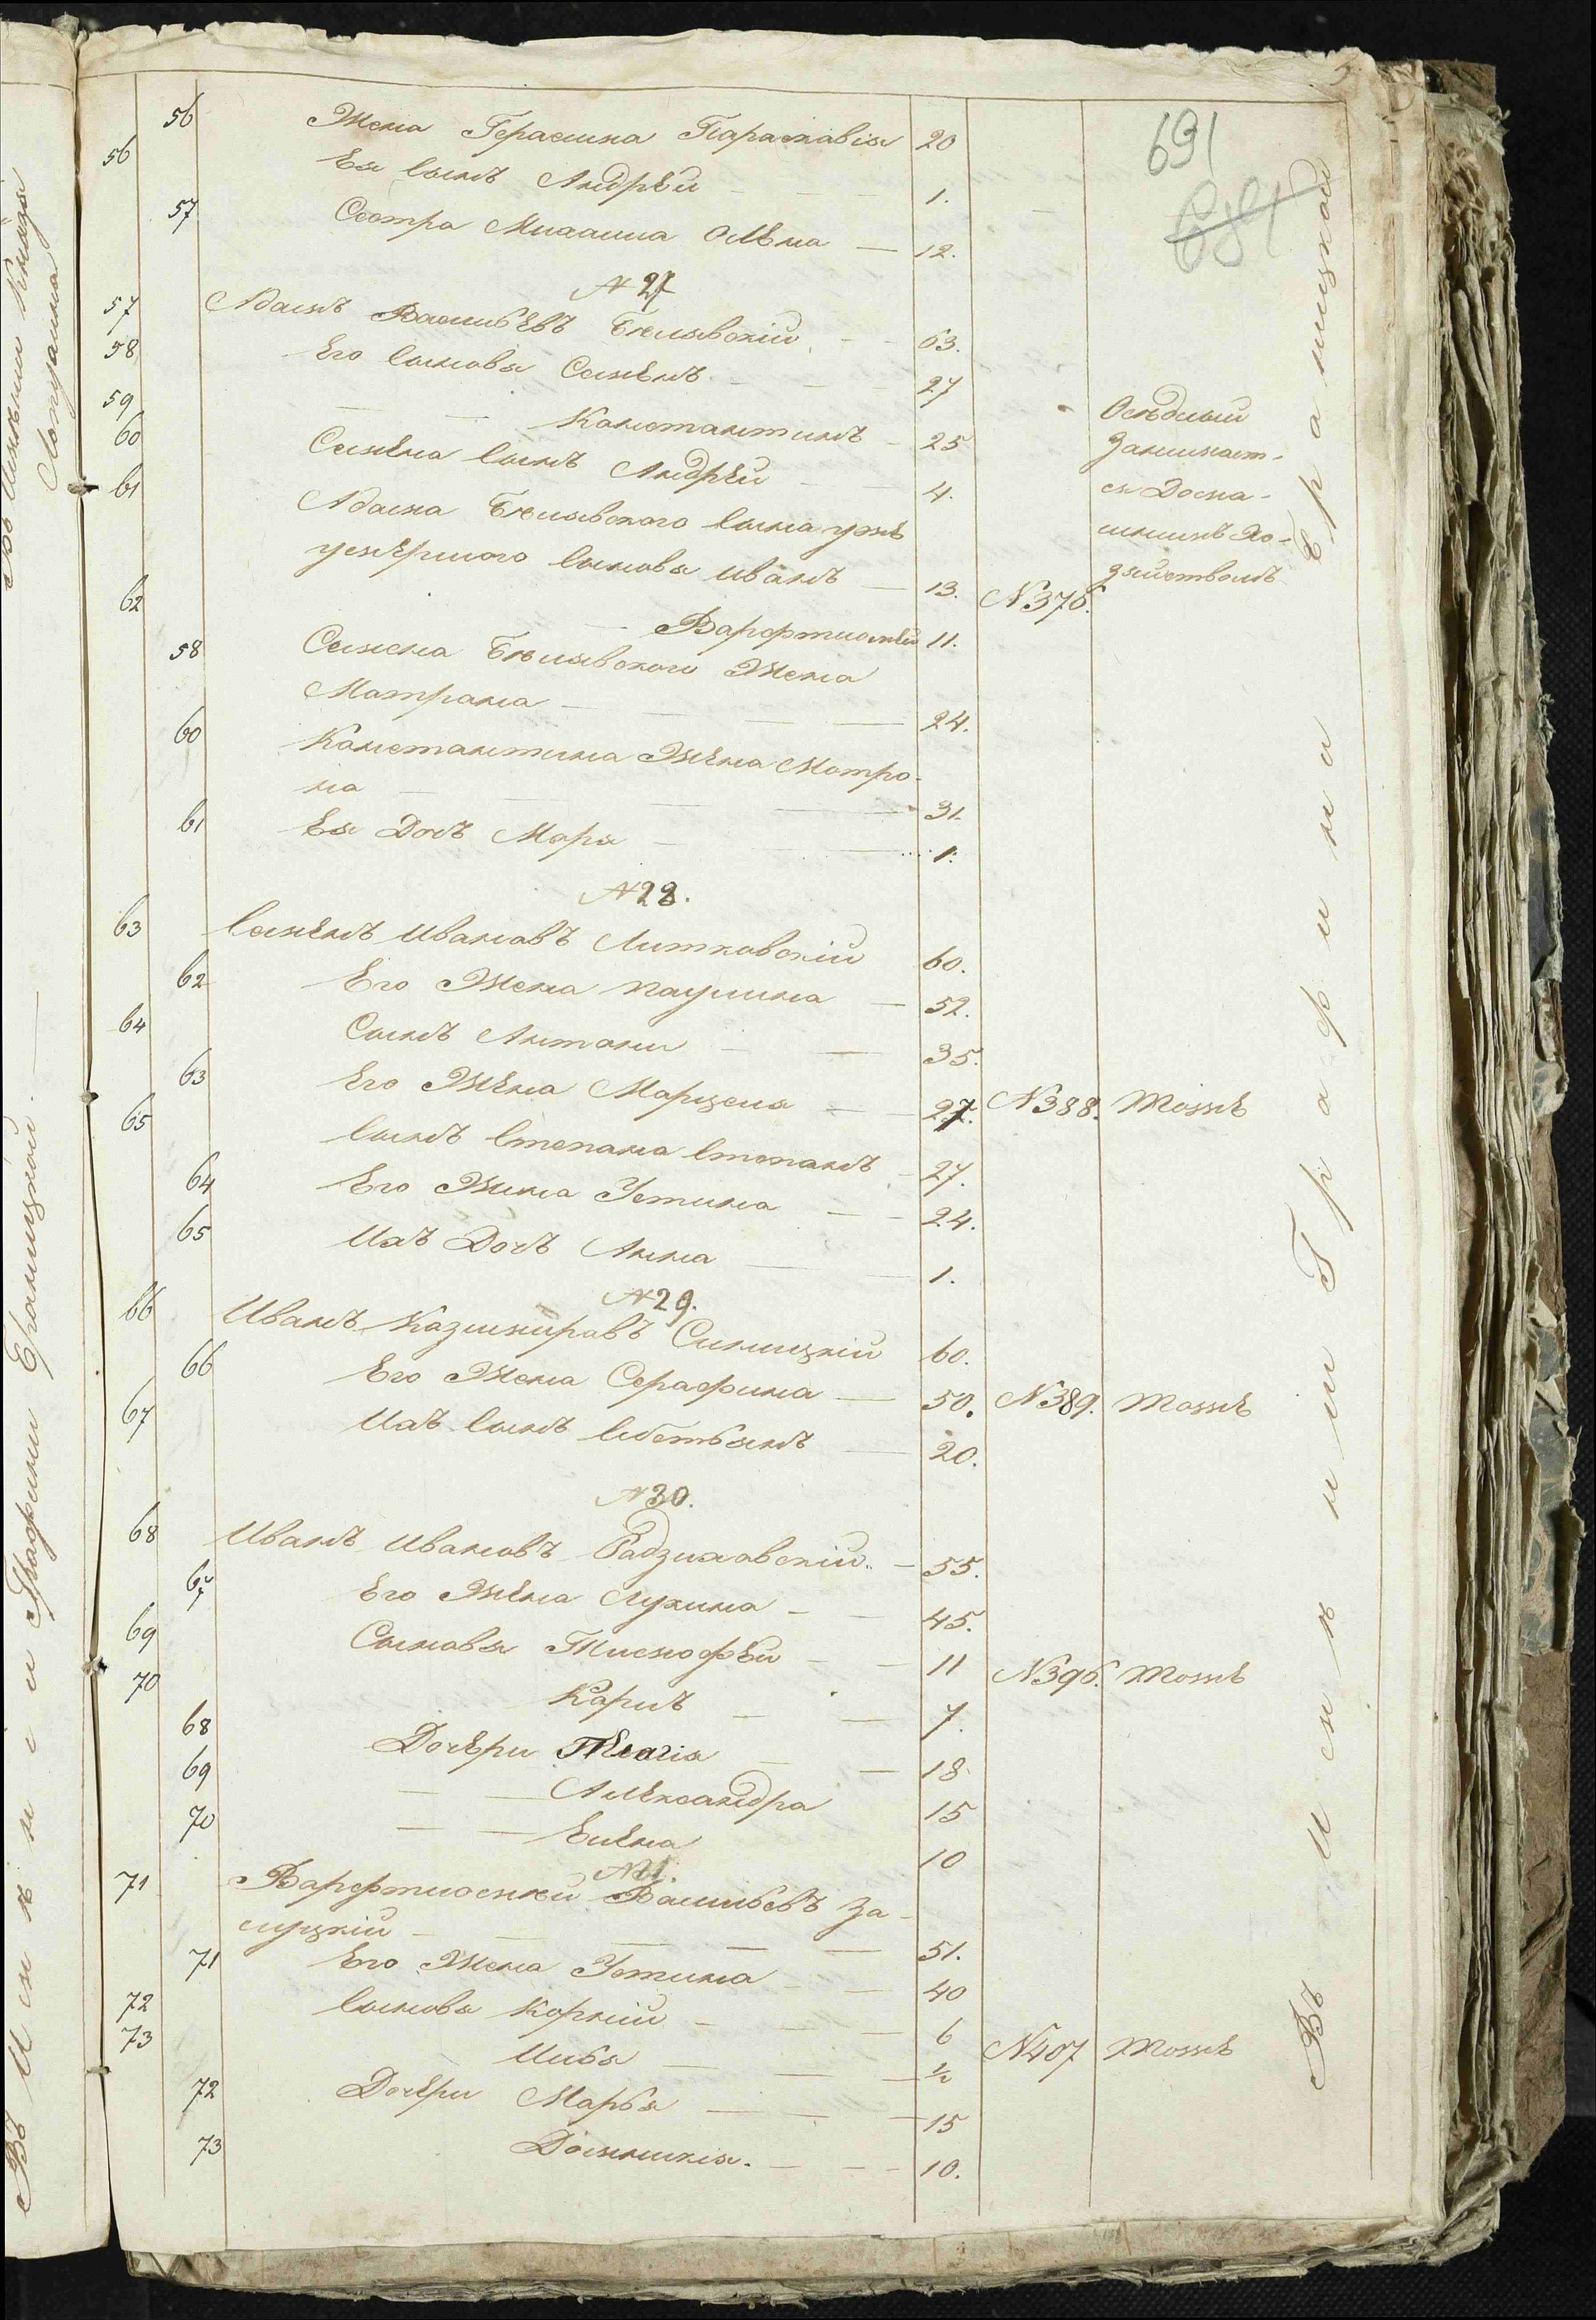 691
681
56 Жена Герасима Параскавія 20
56 Ея сынъ Андрей 1.
57 Сестра Михаила Олѣна 12.
№ 27
57 Адамъ Васильевъ Бѣлявскій 63.
58 Его сыновья Семенъ 27
59 Константинъ 25
60 Семена сынъ Андрей 4.
61 Адама Бѣлявского сына уже
умершого сыновья Иванъ 13. №376.
Осѣдлый
Занимает-
ся Дома-
шнимъ Хо-
зяйствомъ
62 Варфтиомѣй 11.
58 Семена Бѣлявского Жена
Матрана 24.
60 Константина Жена Матро-
на 31.
61 Ея Дочь Маря 1.
№28.
63 Семенъ Ивановъ Литковскій 60.
62 Его Жена Паулина 52.
64 Сынъ Антони 35.
63 Его Жена Марцеля 27. №388. Тоже
65 сынъ Степана Степанъ 27.
64 Его Жена Устина 24.
65 Ихъ Дочь Анна 1.
№29.
66 Иванъ Казимировъ Синицкій 60.
66 Его Жена Серафина 50. №389. Тоже
67 Ихъ сынъ Себстьянъ 20.
№30.
68 Иванъ Ивановъ Радзиховскій 55.
67 Его Жена Лукина 45.
69 Сыновья Тисмофей 11 №396. Тоже
70 Карпъ 7.
68 Дочери Пелагія 18
69 Александра 15
70 Елена 10
№31.
71 Варфтиосмей Васильевъ За-
луцкій 51.
71 Его Жена Устина 40
72 Сыновья Корній 6
73 Илья ½ №407 Тоже
72 Дочери Марья 15
73 Домникія. 10.
Въ Имѣніи Графини Браницкой